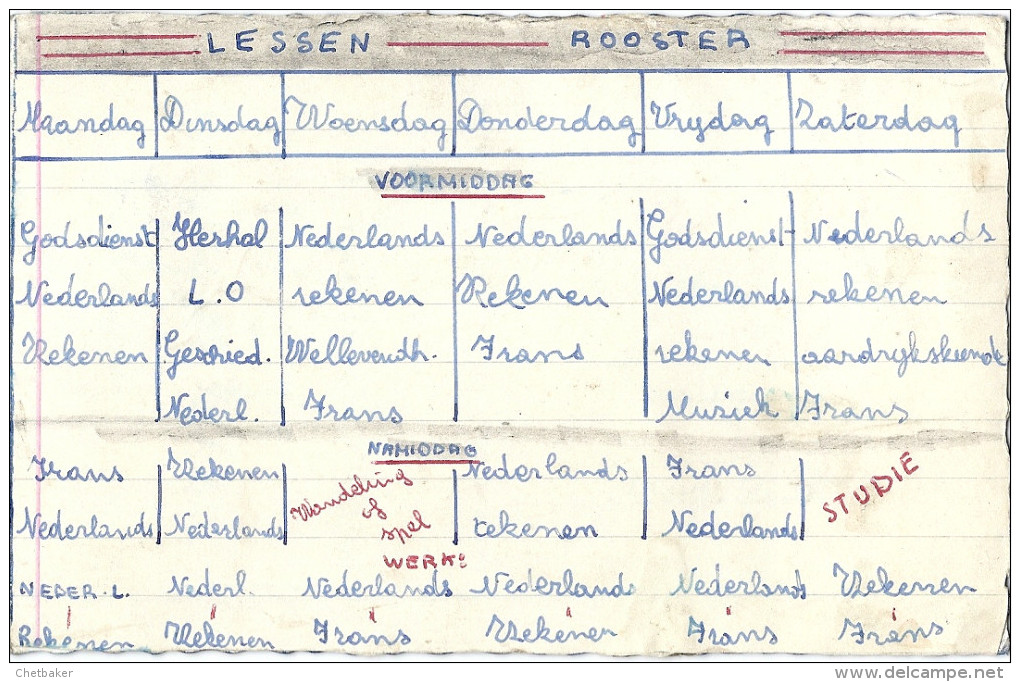 LESSEN ROOSTER
Maandag Dinsdag Woensdag Donderdag Vrydag Zaterdag
VOORMIDDAG
Godsdienst Herhal Nederlands Nederlands Godsdienst Nederlands
Nederlands L.O rekenen Rekenen Nederlands rekenen
Rekenen Geschied. Wellevendh. Frans rekenen aardrykskunde
Nederl. Frans Muziek Frans
NAMIDDAG
Frans Rekenen Wandeling Nederlands Frans STUDIE
of
Nederlands Nederlands spel tekenen Nederlands
WERK:
NEDER.L. Nederl. Nederlands Nederlands Nederlands Rekenen
Rekenen Rekenen Frans Rekenen Frans Frans
Chetbaker
www.delcampe.net